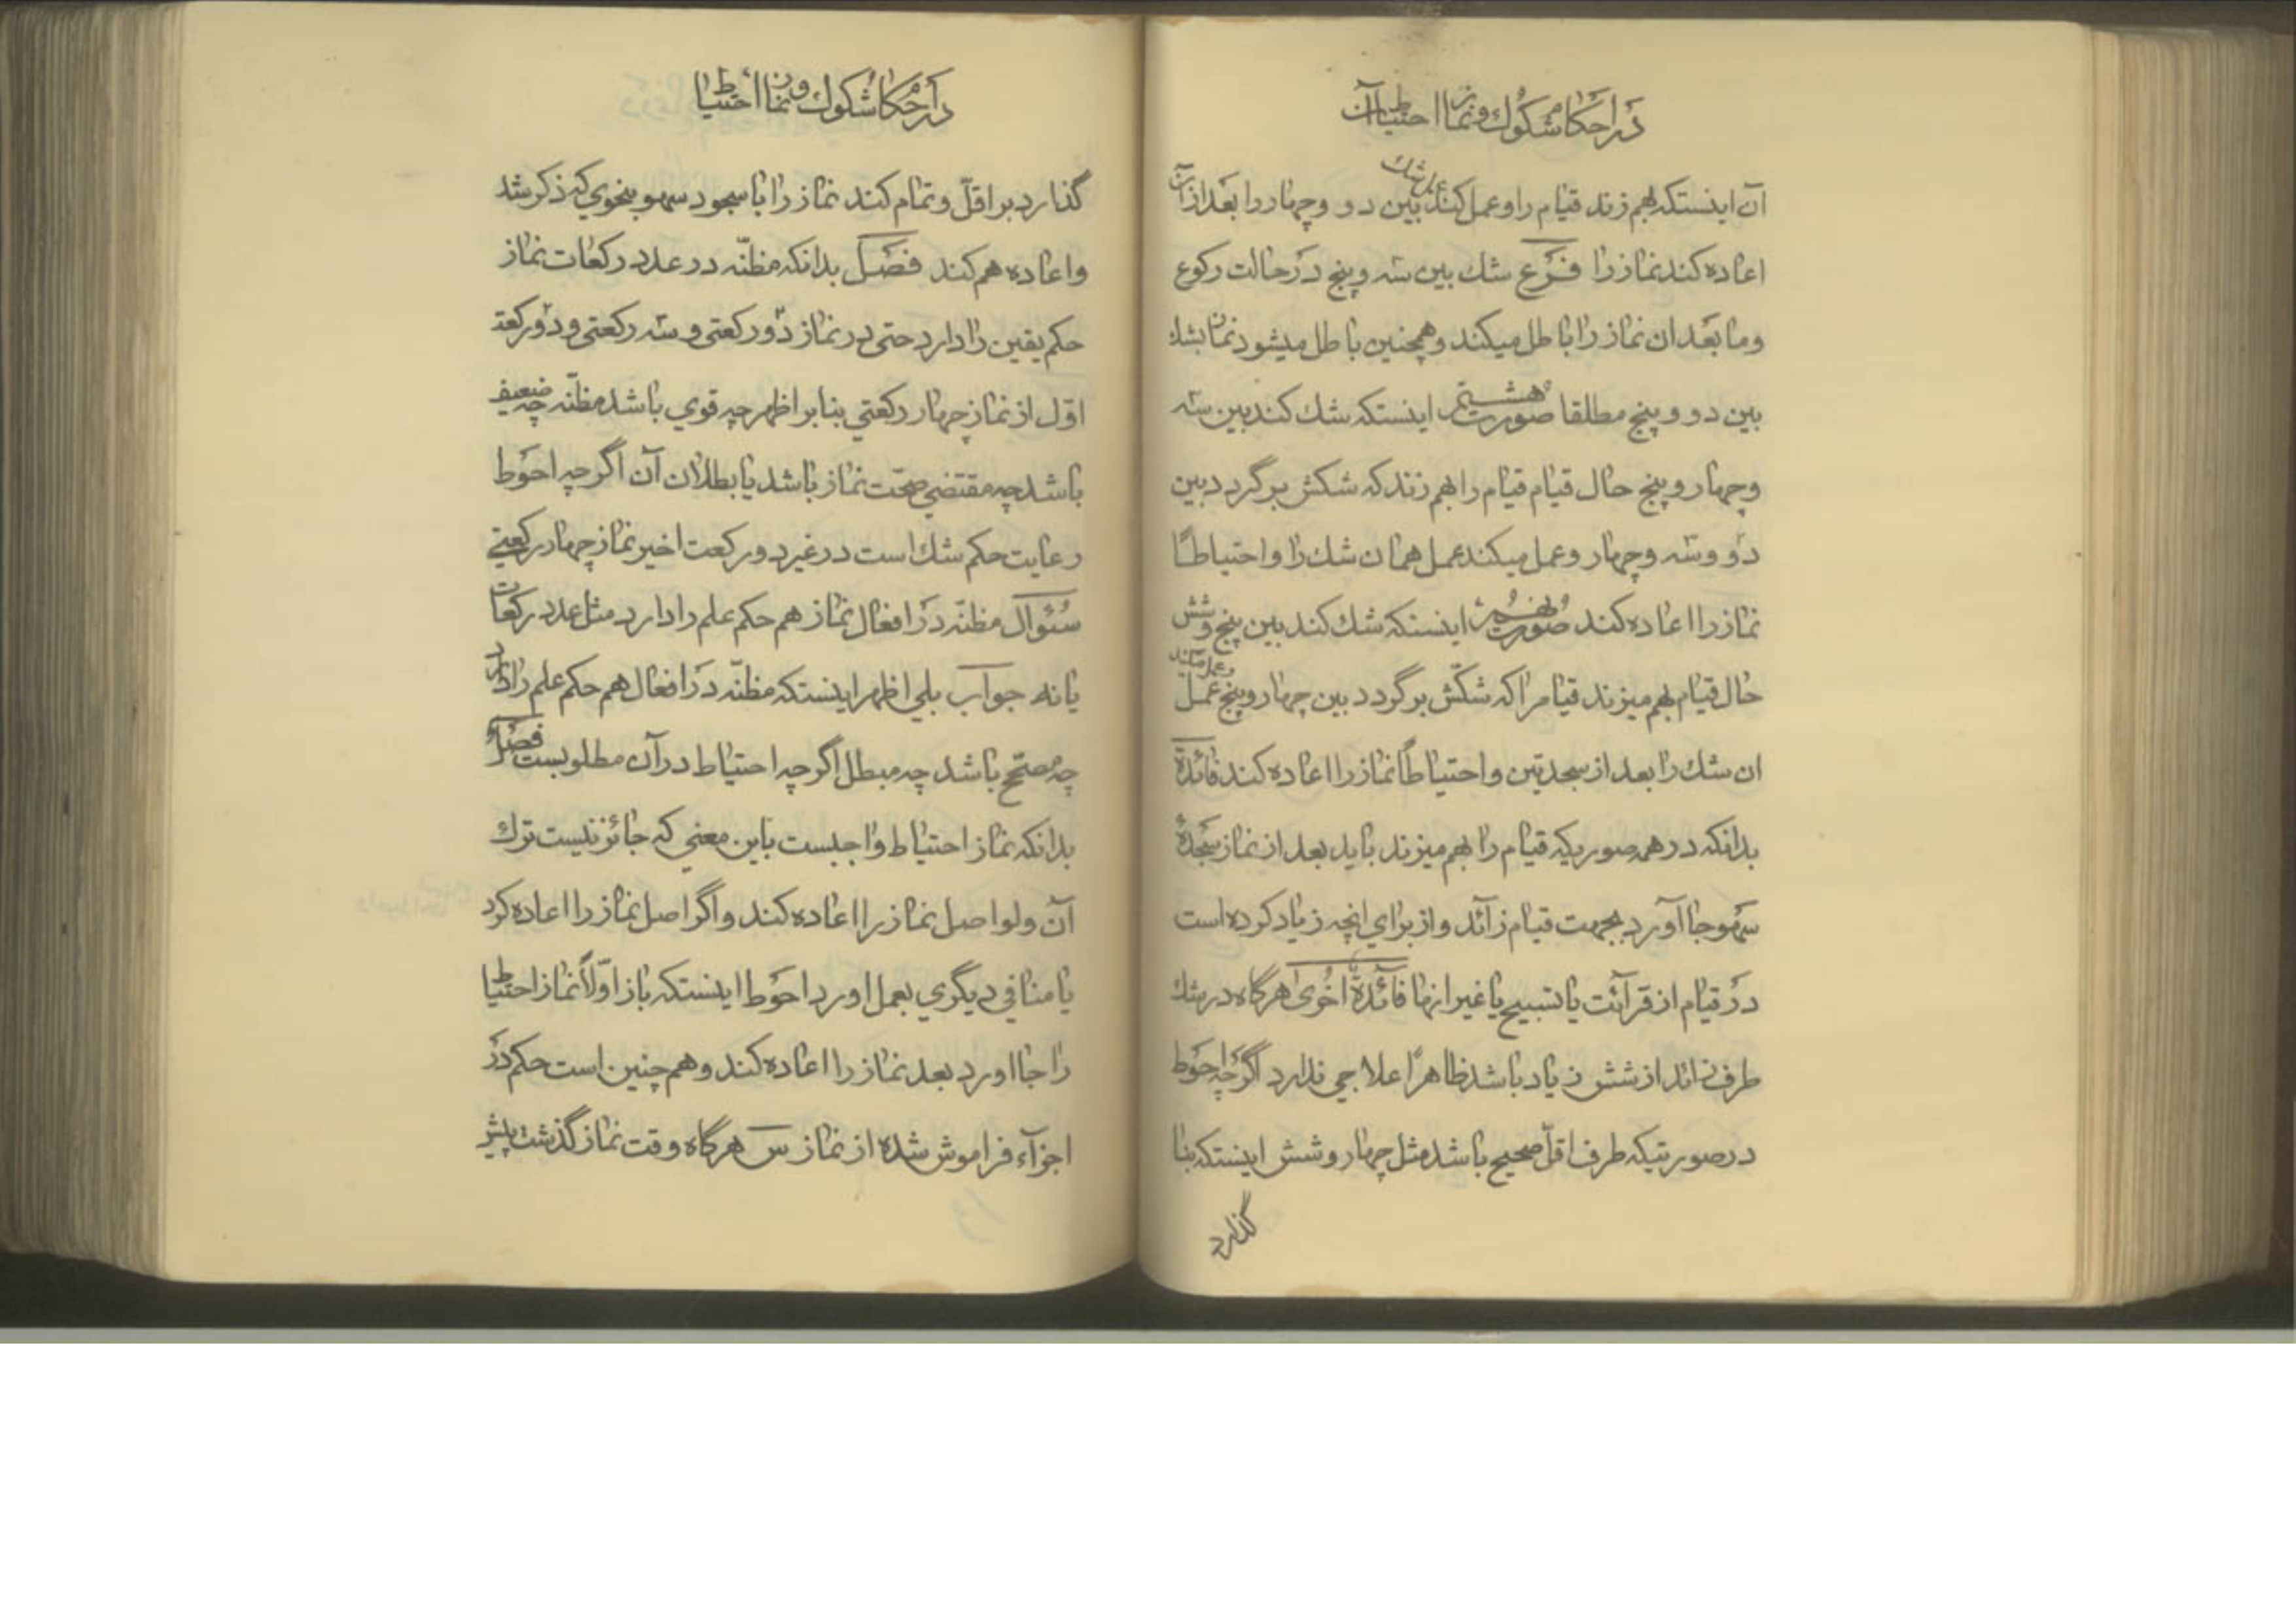 در احکام شکوک و نماز احتیاط آن
آن اینستکه بهم زند قیام را و عمل کند عمل شك بین دو و چهار را بعد از آن
اعاده کند نماز را فرع شك بین سه و پنج در حالت رکوع
و ما بعد ان نماز را باطل میکند و همچنین باطل میشود نماز بشك
بین دو و پنج مطلقا صورت هشتم اینستکه شك کند بین سه
و چهار و پنج حال قیام قیام را بهم زند که شکش برگردد بین
دو و سه و چهار و عمل میکند عمل همان شك را و احتیاطاً
نماز را اعاده کند صورت نهم اینستکه شك کند بین پنج و شش
حال قیام بهم میزند قیام را که شکّش برگردد بین چهار و پنج و عمل میکند عمل
ان شك را بعد از سجدتین و احتیاطاً نماز را اعاده کند فائدة
بدانکه در همه صوریکه قیام را بهم میزند باید بعد از نماز سجدهٔ
سهو جا آورد بجهت قیام زائد و از برای انچه زیاد کرده است
در قیام از قرآئت یا تسبیح یا غیر انها فائدة اخری هرگاه در شك
طرف زائد از شش زیاد باشد ظاهراً علاجی ندارد اگرچه احوط
در صورتیکه طرف اقلّ صحیح باشد مثل چهار و شش اینستکه بنا
گذارد
در احکام شکوک و نماز احتیاط
گذارد بر اقلّ و تمام کند نماز را با سجود سهو بنحوي که ذکر شد
و اعاده هم کند فصل بدانکه مظنّه در عدد رکعات نماز
حکم یقین را دارد حتی در نماز دو رکعتی و سه رکعتی و دو رکعت
اوّل از نماز چهار رکعتي بنا بر اظهر چه قوي باشد مظنّه چه ضعیف
باشد چه مقتضي صحّت نماز باشد یا بطلان آن اگرچه احوط
رعایت حکم شك است در غیر دو رکعت اخیر نماز چهار رکعتي
سئوال مظنّه در افعال نماز هم حکم علم را دارد مثل عدد رکعات
یا نه جواب بلي اظهر اینستکه مظنّه در افعال هم حکم علم را دارد
چه مصحّح باشد چه مبطل اگرچه احتیاط در آن مطلوبست فصل
بدانکه نماز احتیاط واجبست باین معني که جائز نیست ترك
آن ولو اصل نماز را اعاده کند و اگر اصل نماز را اعاده کرد
یا منافي دیگري بعمل اورد احوط اینستکه باز اوّلاً نماز احتیاط
را جا اورد بعد نماز را اعاده کند و هم چنین است حکم در
اجزآء فراموش شده از نماز س هرگاه وقت نماز گذشت پیش